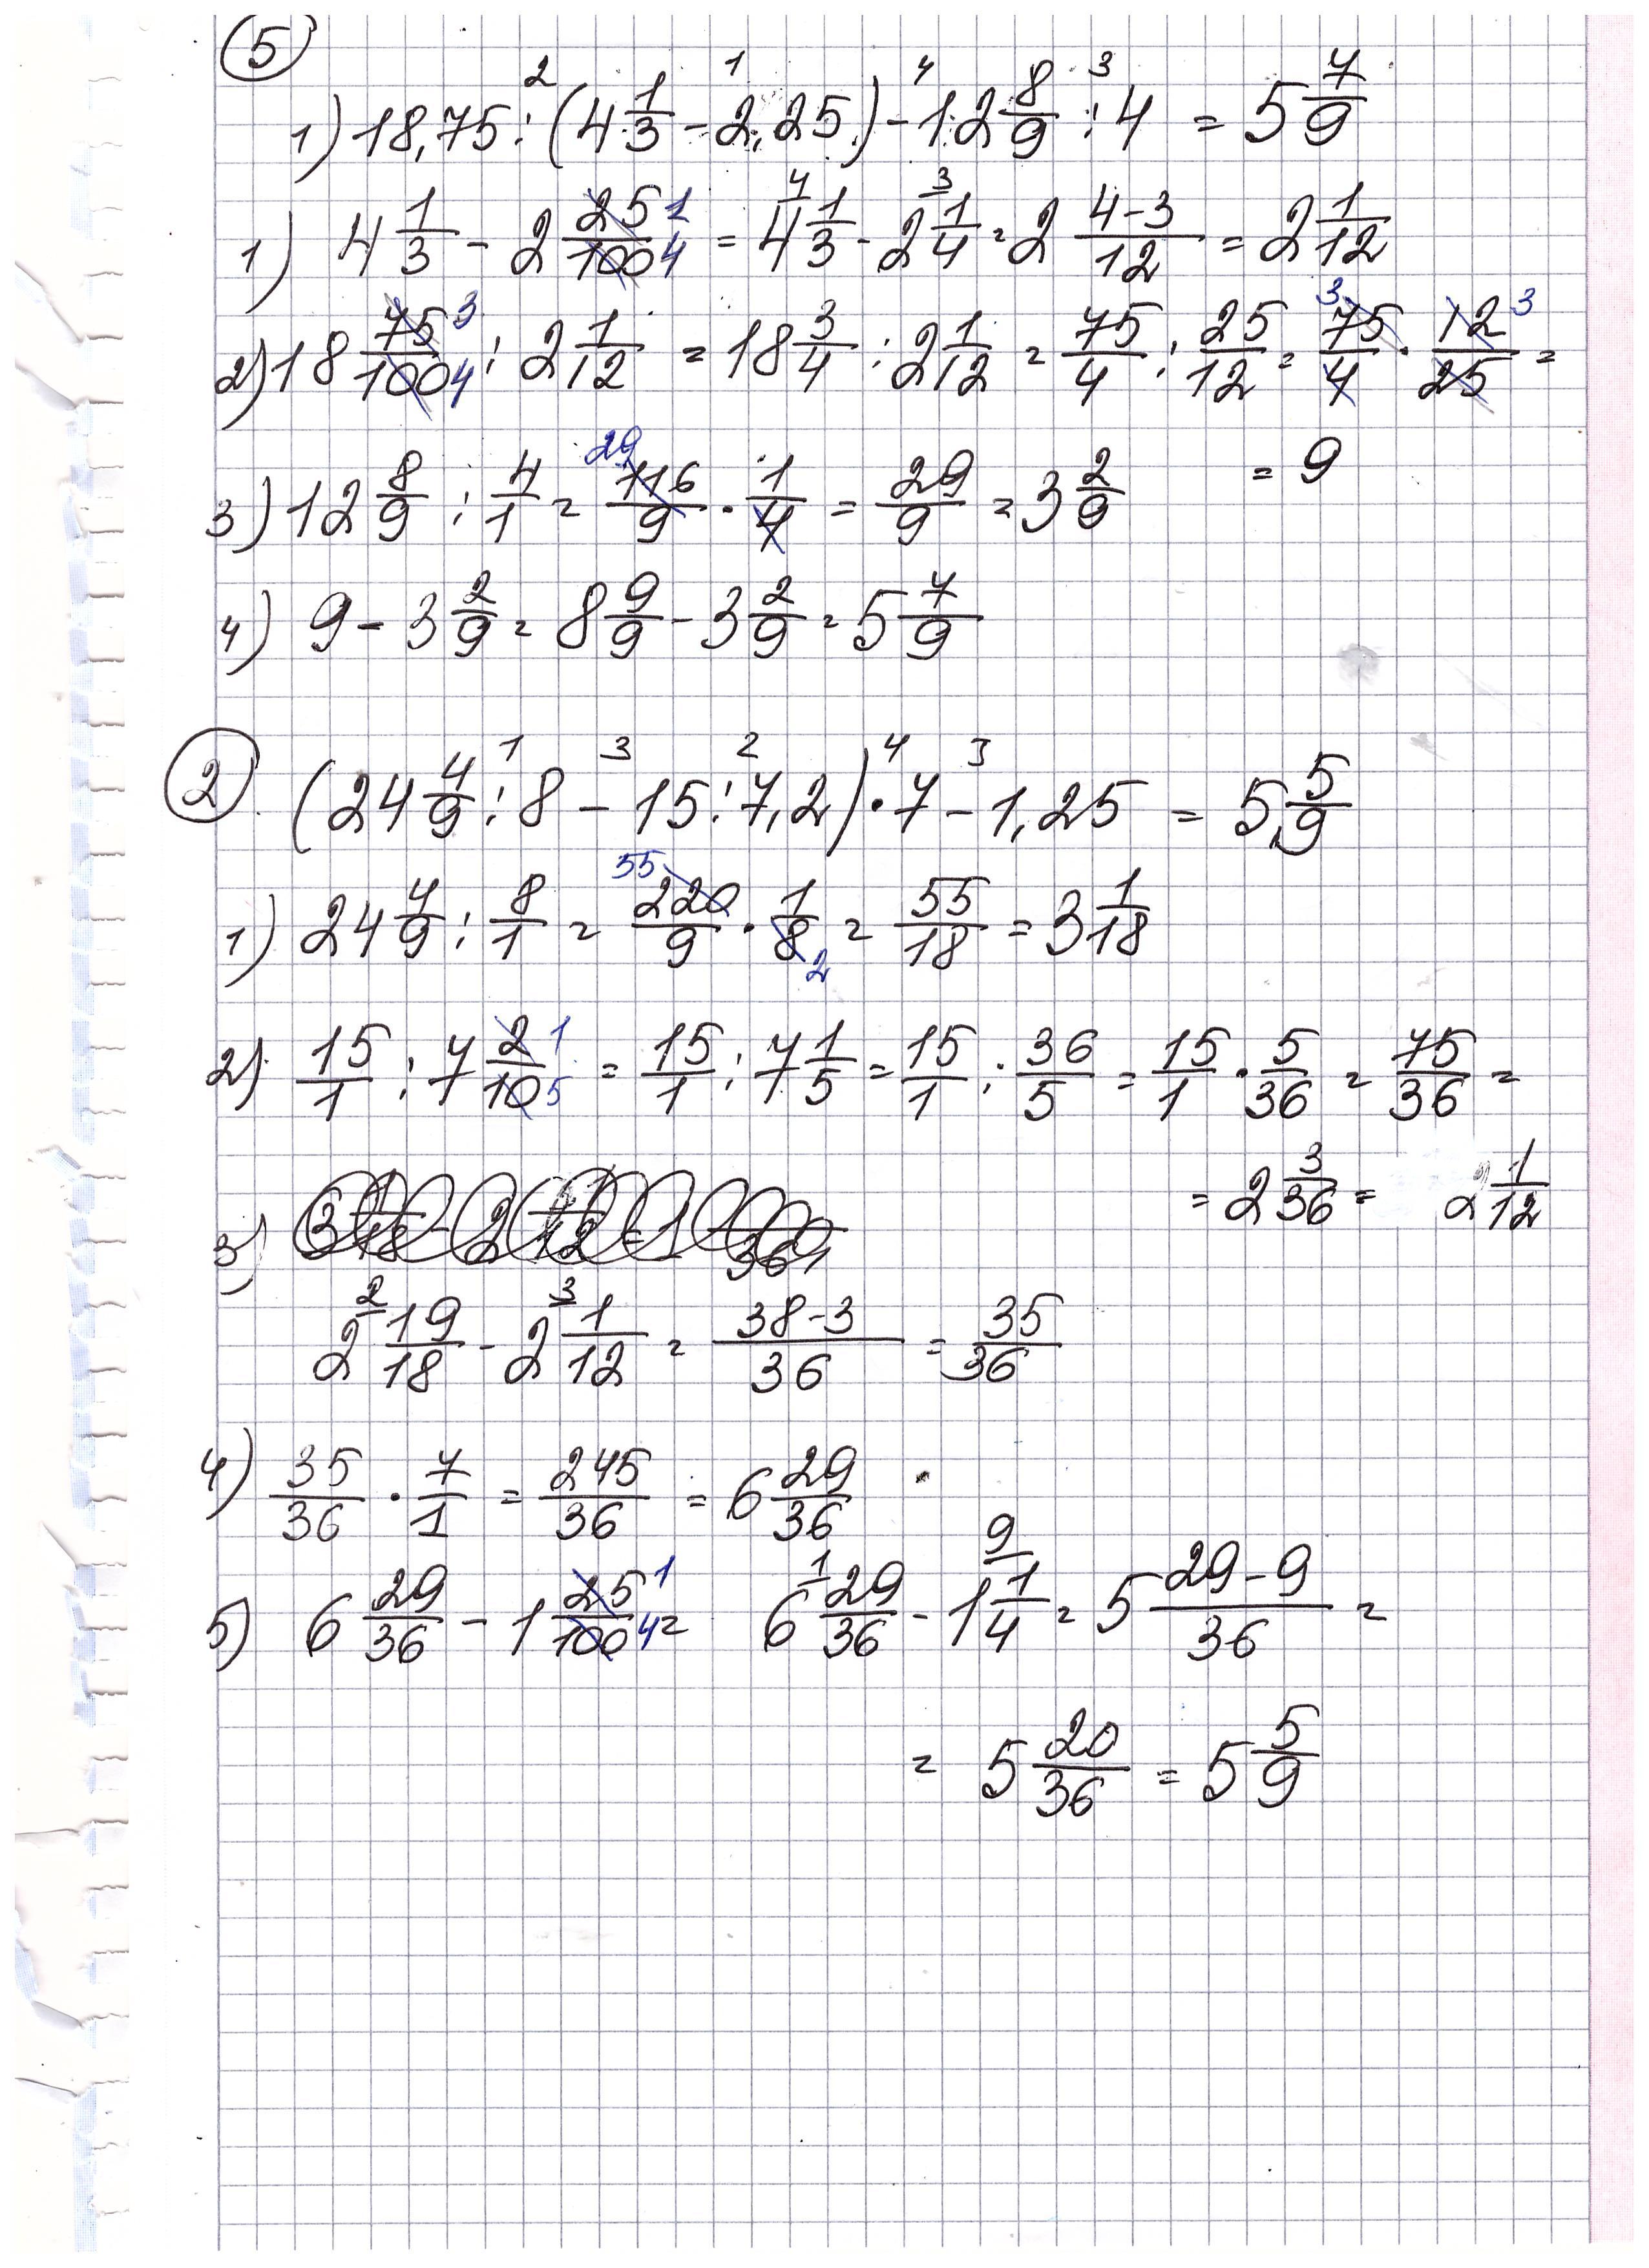 5
1) 18,75 : (4 1/3 - 2,25) - 12 8/9 : 4 = 5 7/9
1) 4 1/3 - 2 25/100 = 4 1/3 - 2 1/4 = 2 (4-3)/12 = 2 1/12
2) 18 75/100 : 2 1/12 = 18 3/4 : 2 1/12 = 75/4 : 25/12 = 75/4 · 12/25 =
= 9
3) 12 8/9 : 4/1 = 116/9 · 1/4 = 29/9 = 3 2/9
4) 9 - 3 2/9 = 8 9/9 - 3 2/9 = 5 7/9
2. (24 4/9 : 8 - 15 : 7,2) · 7 - 1,25 = 5 5/9
1) 24 4/9 : 8/1 = 220/9 · 1/8 = 55/18 = 3 1/18
2) 15/1 : 7 2/10 = 15/1 : 7 1/5 = 15/1 : 36/5 = 15/1 · 5/36 = 75/36 =
= 2 3/36 = 2 1/12
3)
2 19/18 - 2 1/12 = (38-3)/36 = 35/36
4) 35/36 · 7/1 = 245/36 = 6 29/36
5) 6 29/36 - 1 25/100 = 6 29/36 - 1 1/4 = 5 (29-9)/36 =
= 5 20/36 = 5 5/9